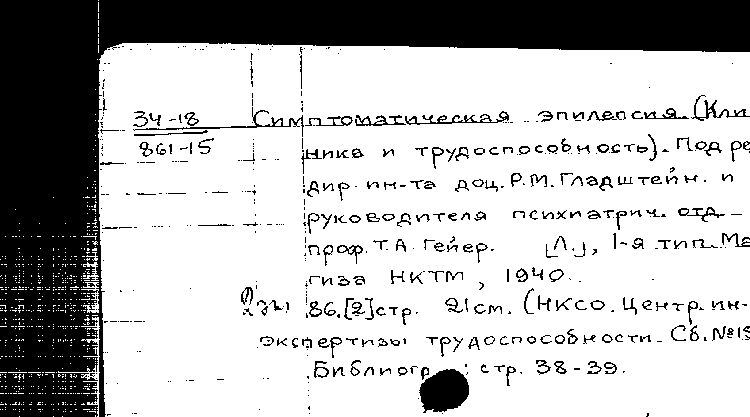 34-18 Симптоматическая эпилепсия. (Кли
861-15 ника и трудоспособность). Под ре
дир. ин-та доц. Р.М. Гладштейн. и
руководителя психиатрич. отд.
проф. Т.А. Гейер. [Л.], 1-я тип. Ма
гиза НКТМ, 1940.
86.[2]стр. 21см. (НКСО. Центр. ин-
экспертизы трудоспособности. Сб. №13
Библиогр.: стр. 38-39.